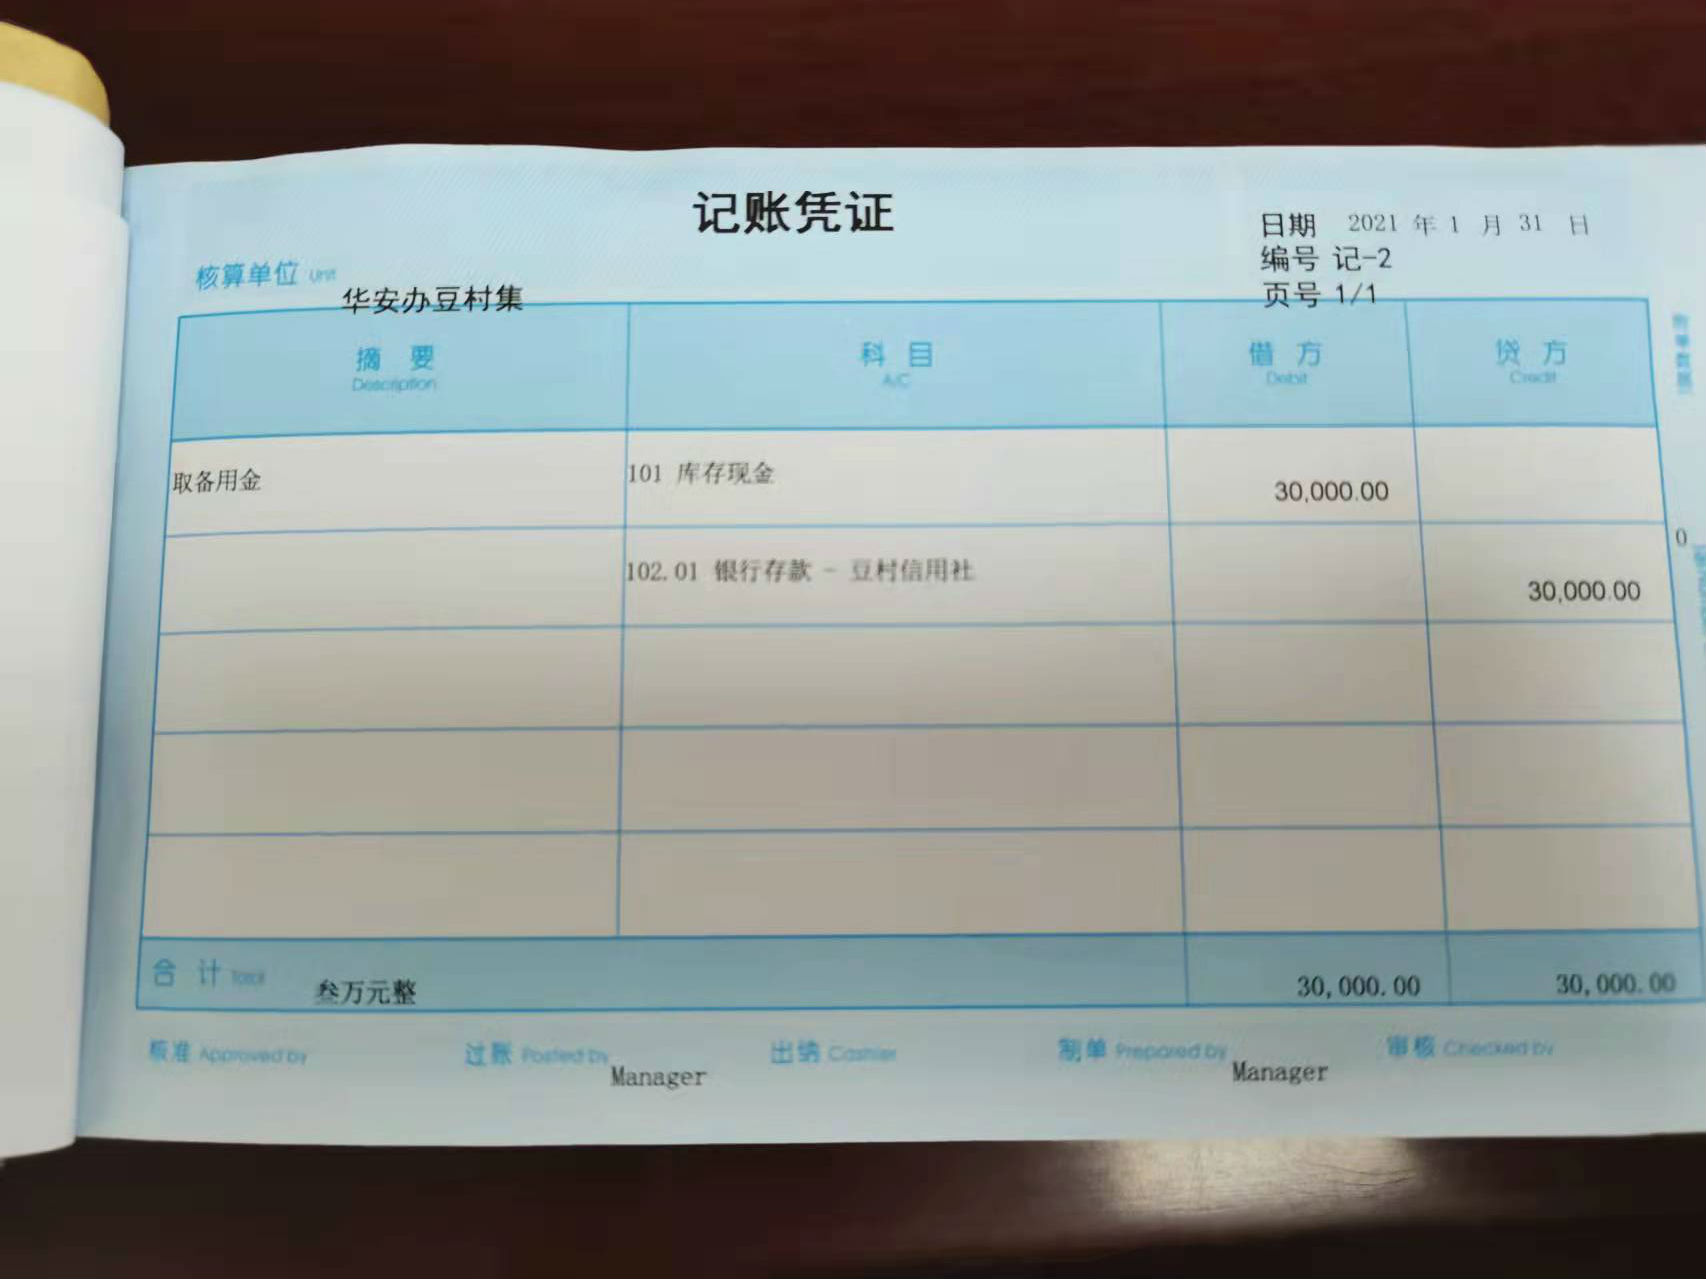 记账凭证
日期 2021 年 1 月 31 日
编号 记-2
核算单位 Unit
华安办豆村集
页号 1/1
摘 要 科 目 借 方 贷 方
Description A/C Debit Credit
取备用金 101 库存现金 30,000.00
0
102.01 银行存款 - 豆村信用社 30,000.00
合 计 Total 叁万元整 30,000.00 30,000.00
核准 Approved by 过账 Posted by 出纳 Cashier 制单 Prepared by 审核 Checked by
Manager Manager